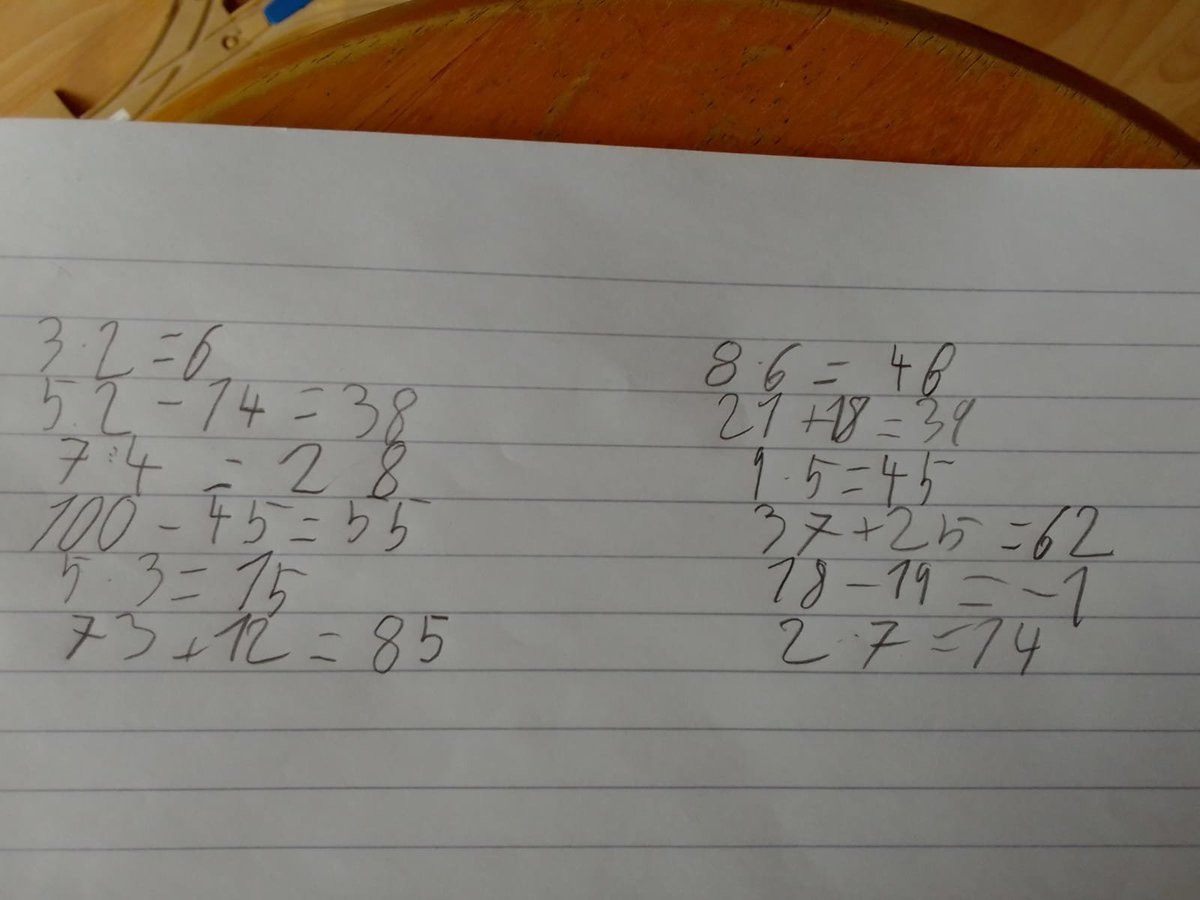 3·2 = 6
52 - 14 = 38
7·4 = 28
100 - 45 = 55
5·3 = 15
73 + 12 = 85
8·6 = 48
21 + 18 = 39
9·5 = 45
37 + 25 = 62
18 - 19 = -1
2·7 = 14